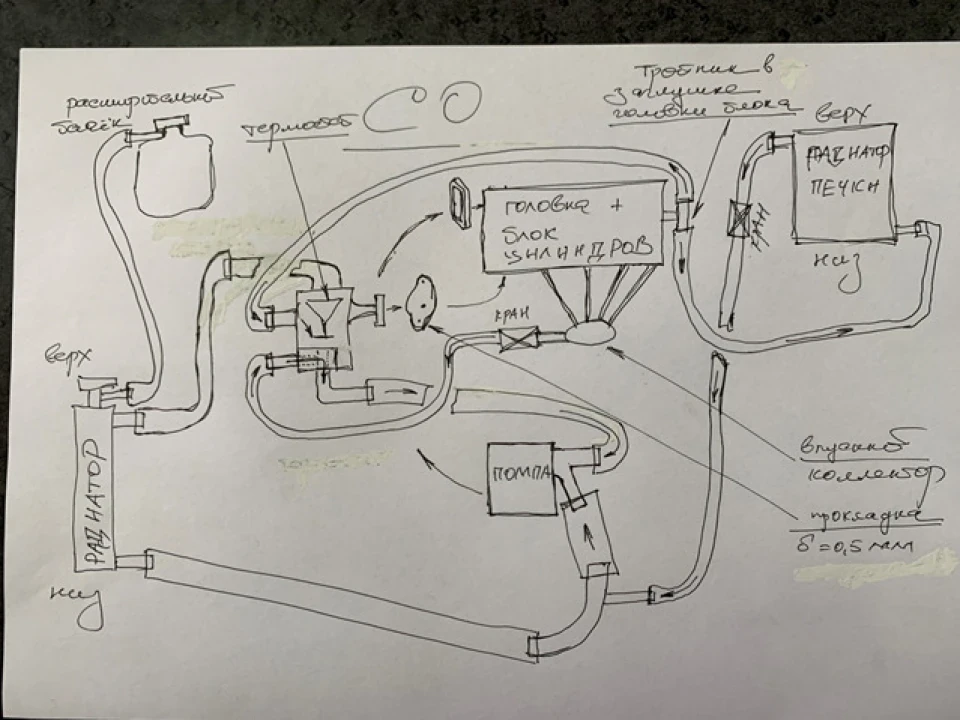 расширительной
бачёк
термобот
СО
тройник в
заглушке
головки блока
верх
РАДИАТОР
ПЕЧКИ
КРАН
низ
головка +
блок
цилиндров
КРАН
верх
РАДИАТОР
низ
ПОМПА
впускной
коллектор
прокладка
δ=0,5 мм